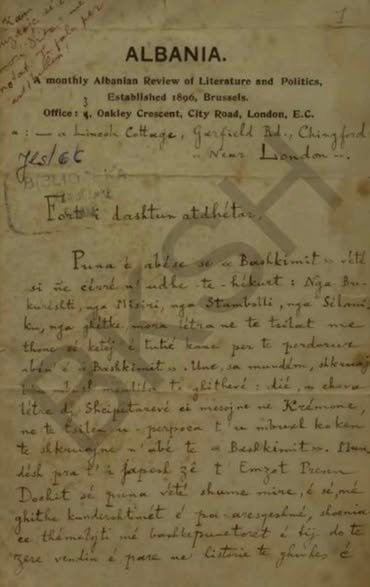 1
ALBANIA.
A monthly Albanian Review of Literature and Politics,
Established 1896, Brussels.
Office: 3, Oakley Crescent, City Road, London, E.C.
a : — a Lincoln Cottage, Garfield Rd., Chingford
" Near London ".
Fort i dashtun atdhétar,
Puna é abése se « Bashkimit » vété
si ñe cévré n' udhe - te - hékurt : Nga Bu-
kuréshti, nga Misiri, nga Stambolli, nga Sélani-
ku, nga ghitke, mora létra ne te tsilat me
thone sé ketéj é tutié kane per te perdorure
abén é « Bashkimit ». Une, sa mundém, shkruaj
te ghithevé : dié, u chova
létre dy Shcipetarevé ci mesojne ne Krémone,
ne te tsilen u - perpoca t' u mbush koken
te shkruajne n' abé te « Bashkimit ». Mun-
désh pra t' i japesh zé t' Emzot Prenn
Dochit sé puna vété shume mire, é sé, mé
ghithe kundershtimét é pa-arsyeshmé, shocnia
ce thémelyti mé bashkepunetorét é tij do te
zere vendin é pare ne historie te ghuhes é